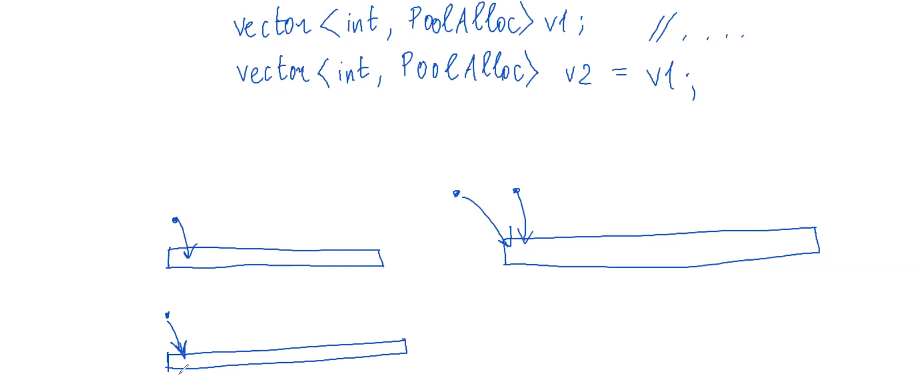 vector<int, PoolAlloc> v1; // . . . .
vector<int, PoolAlloc> v2 = v1;